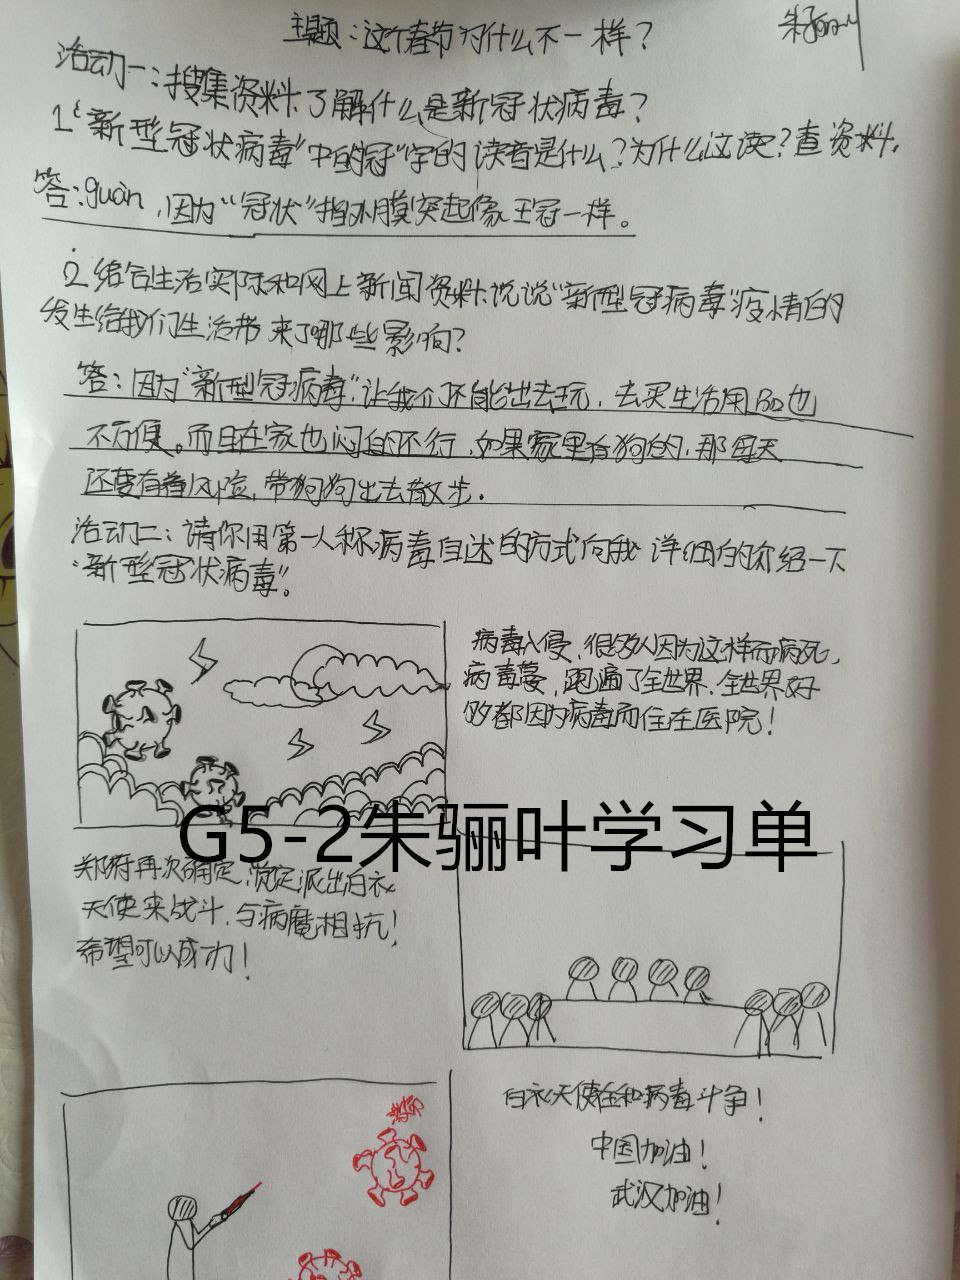 主题：这个春节为什么不一样？
活动一：搜集资料、了解什么是新冠状病毒？
1“新型冠状病毒”中的“冠”字的读音是什么？为什么这读？查资料。
答：guàn，因为“冠状”指外膜突起像王冠一样。
2 结合生活实际和网上新闻资料、说说“新型冠病毒”疫情的
发生给我们生活带来了哪些影响？
答：因为“新型冠病毒”，让我们不能出去玩，去买生活用品也
不方便。而且在家也闷的不行，如果家里有狗的，那每天
还要冒着风险，带狗狗出去散步。
活动二：请你用第一人称病毒自述的方式向我详细的介绍一下
“新型冠状病毒”。
病毒入侵，很多人因为这样而病死，
病毒蔓，跑遍了全世界，全世界好
多都因为病毒而住在医院！
G5-2朱骊叶学习单
政府再次确定，决定派出白衣
天使来战斗，与病魔相抗！
希望可以成功！
白衣天使在和病毒斗争！
中国加油！
武汉加油！